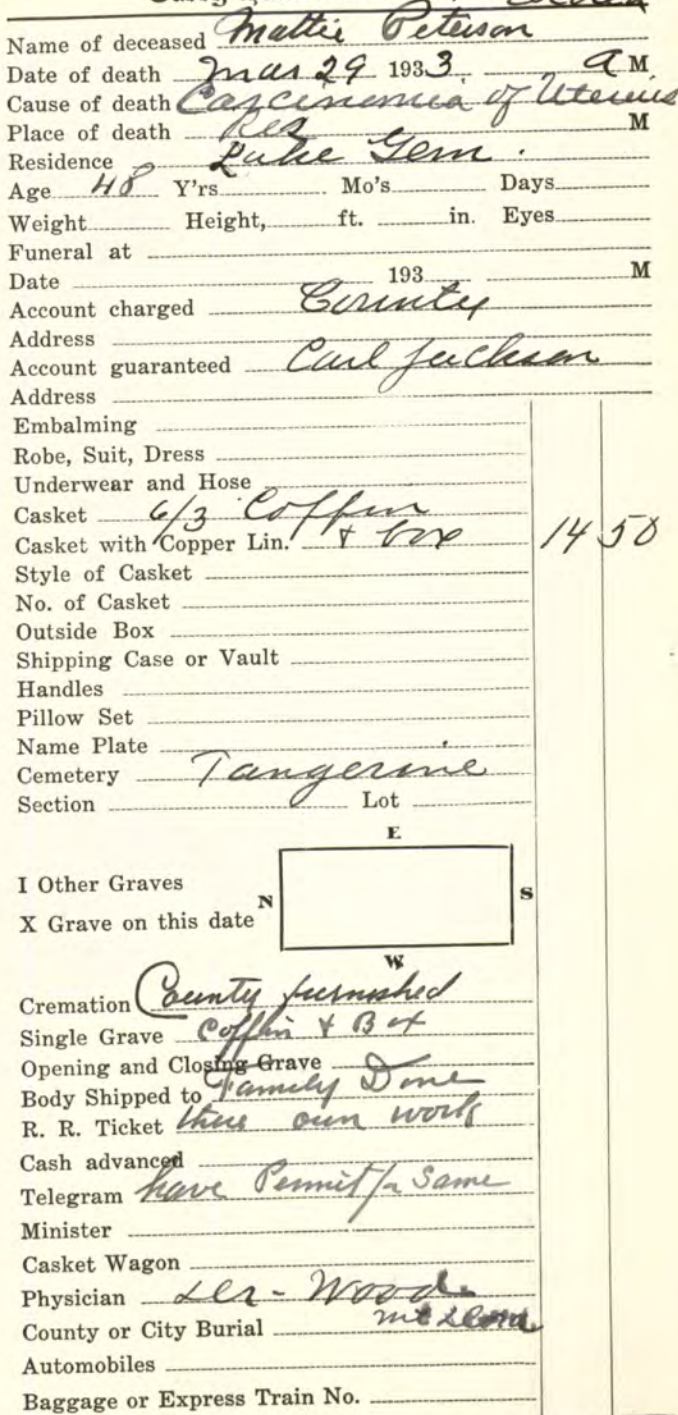 Name of deceased Mattie Peterson
Date of death Mar 29 1933 A M
Cause of death Carcinomia of Uterus
Place of death Res M
Residence Lake Gem.
Age 48 Y'rs Mo's Days
Weight Height, ft. in. Eyes
Funeral at
Date 193 M
Account charged County
Address
Account guaranteed Carl Jackson
Address
Embalming
Robe, Suit, Dress
Underwear and Hose
Casket 6/3 Coffin
Casket with Copper Lin. & box 14 50
Style of Casket
No. of Casket
Outside Box
Shipping Case or Vault
Handles
Pillow Set
Name Plate
Cemetery Tangerine
Section Lot
E
I Other Graves
N S
X Grave on this date
W
Cremation County furnished
Single Grave Coffin & Box
Opening and Closing Grave
Body Shipped to Family Done
R. R. Ticket there own work
Cash advanced
Telegram have Permit for Same
Minister
Casket Wagon
Physician Wood
County or City Burial
Automobiles
Baggage or Express Train No.